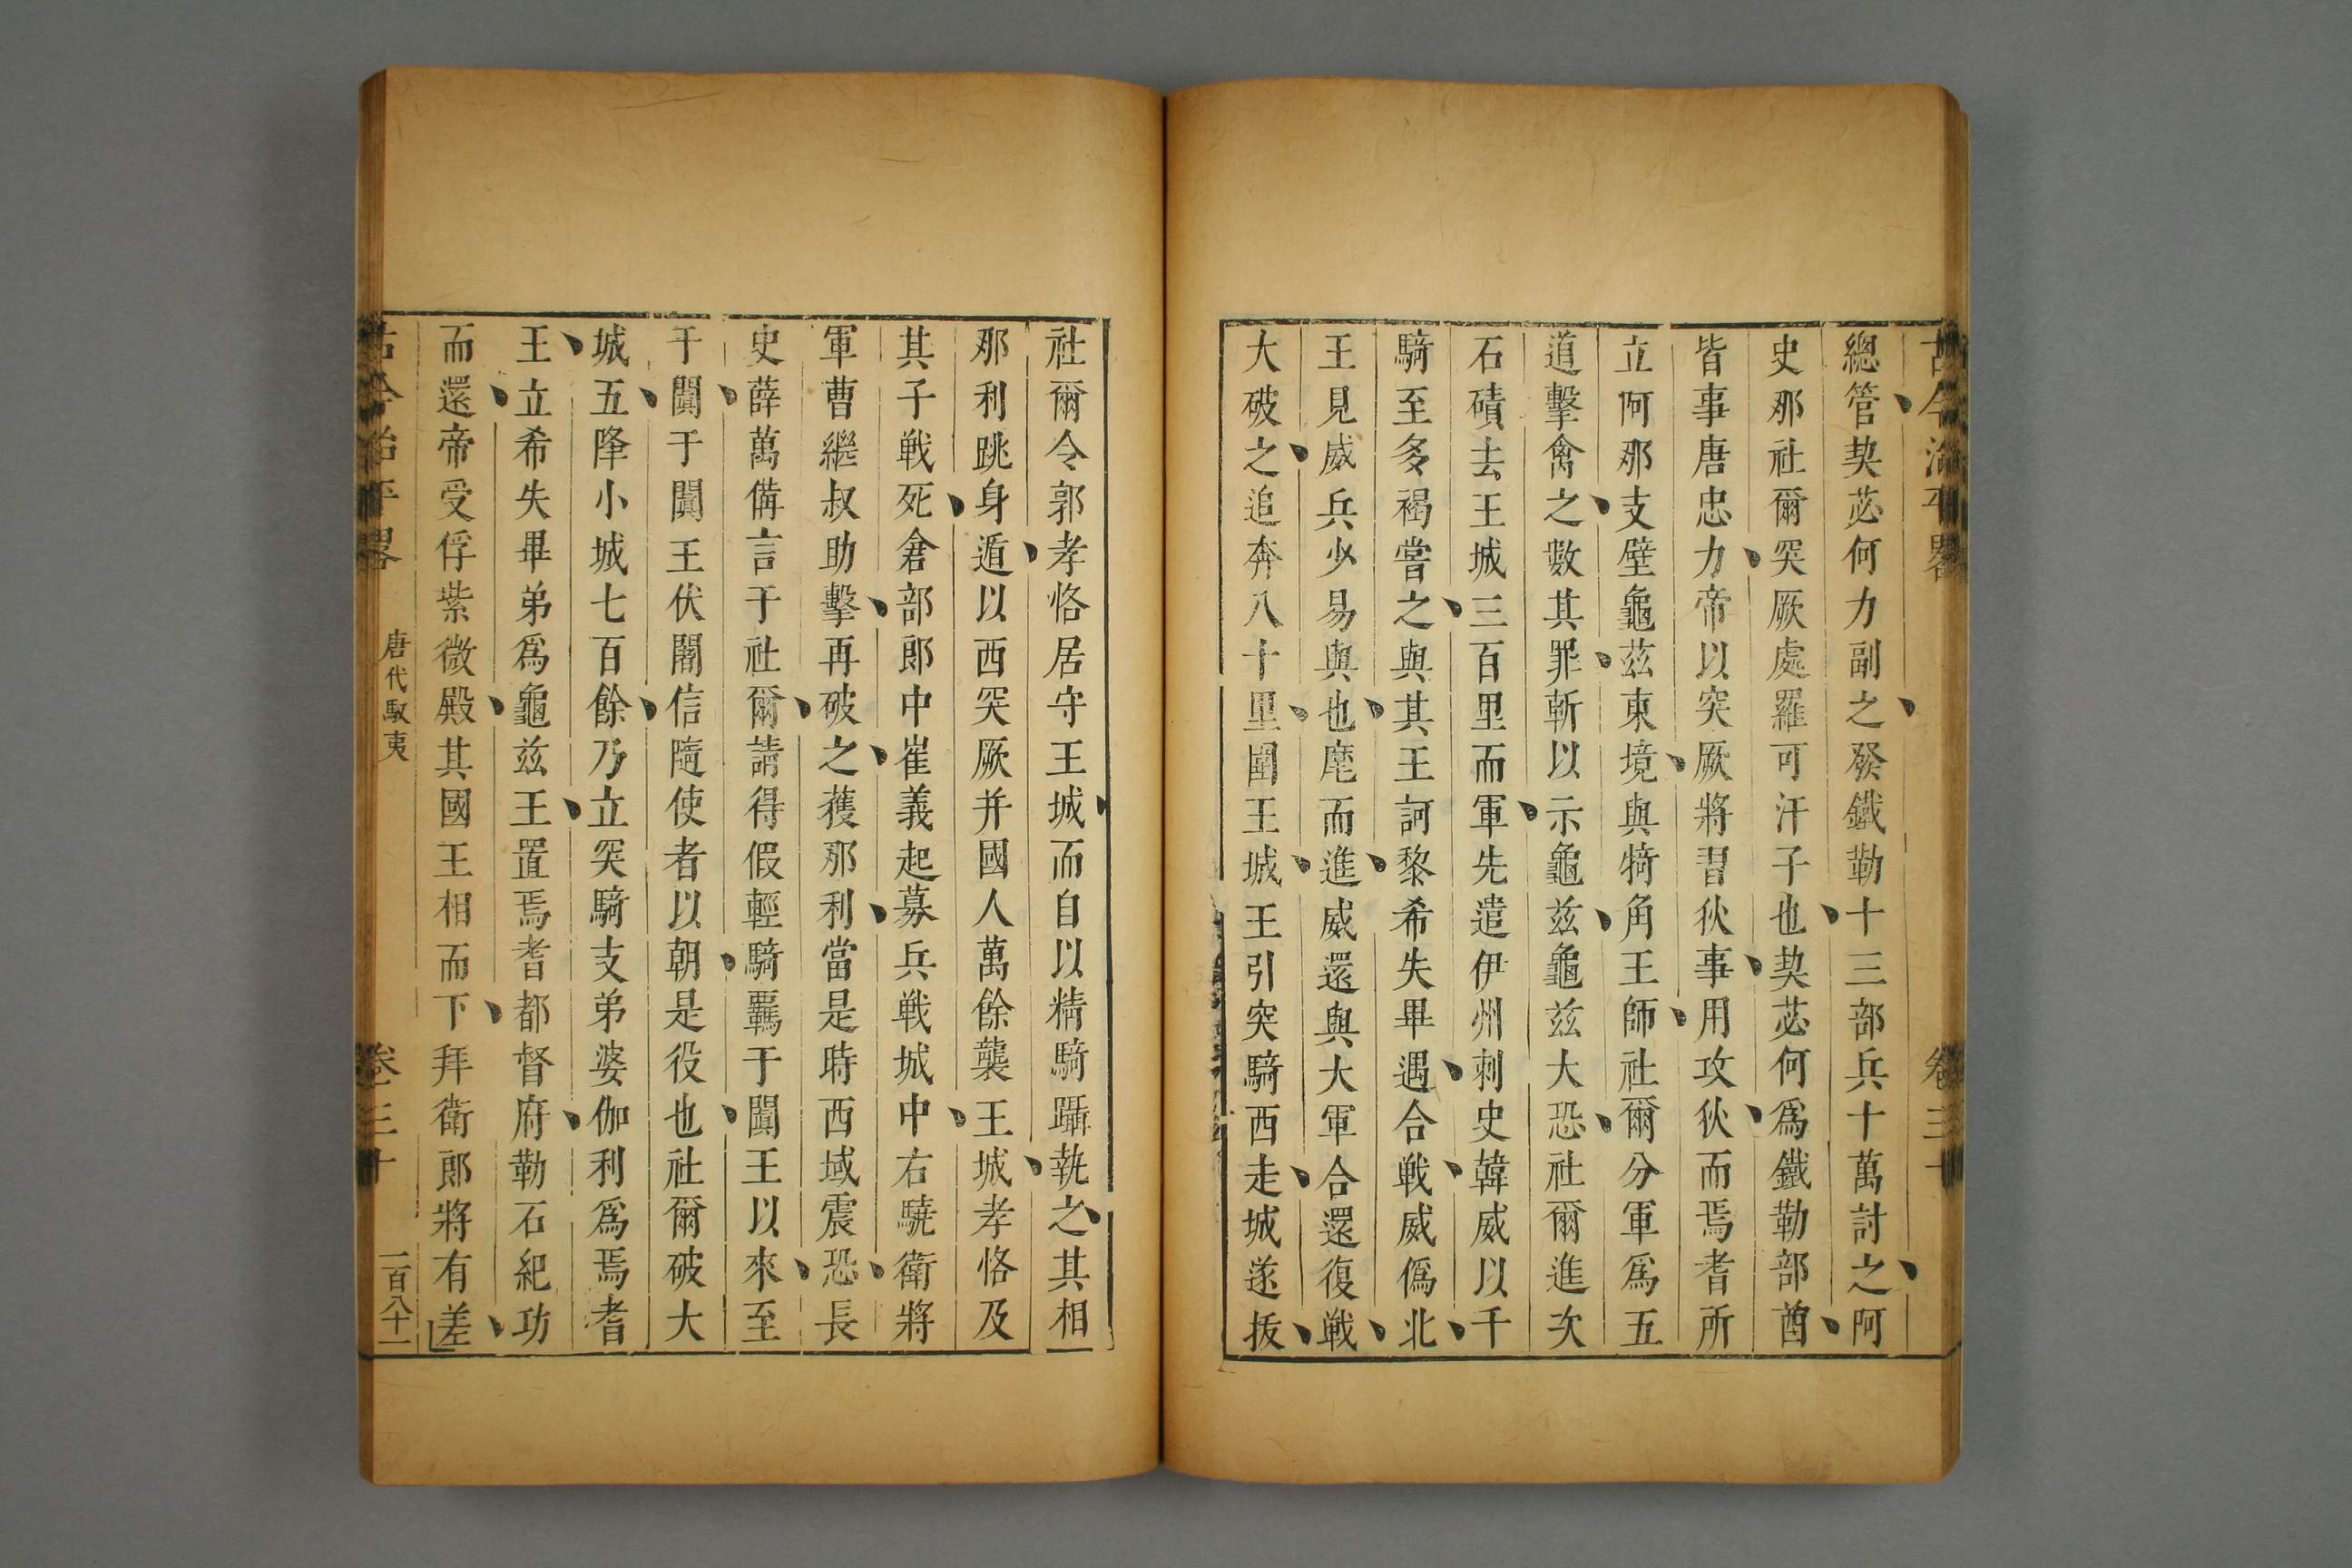 古今治平畧 卷三十
總管契苾何力副之發鐵勒十三部兵十萬討之阿
史那社爾突厥處羅可汗子也契苾何爲鐵勒部酋
皆事唐忠力帝以突厥將習狄事用攻狄而焉耆所
立阿那支壁龜兹東境與犄角王師社爾分軍爲五
道擊禽之數其罪斬以示龜兹龜兹大恐社爾進次
石磧去王城三百里而軍先遣伊州刺史韓威以千
騎至多褐嘗之與其王訶黎希失畢遇合戦威僞北
王見威兵少易與也麾而進威還與大軍合還復戦
大破之追奔八十里圍王城王引突騎西走城遂拔
社爾令郭孝恪居守王城而自以精騎躡執之其相
那利跳身遁以西突厥并國人萬餘襲王城孝恪及
其子戦死倉部郎中崔義起募兵戦城中右驍衛將
軍曹繼叔助擊再破之獲那利當是時西域震恐長
史薛萬備言于社爾請得假輕騎羈于闐王以來至
于闐于闐王伏闍信隨使者以朝是役也社爾破大
城五降小城七百餘乃立突騎支弟婆伽利爲焉耆
王立希失畢弟爲龜兹王置焉耆都督府勒石紀功
而還帝受俘紫微殿其國王相而下拜衛郎將有差
古今治平畧 唐代馭夷 卷三十 一百八十一